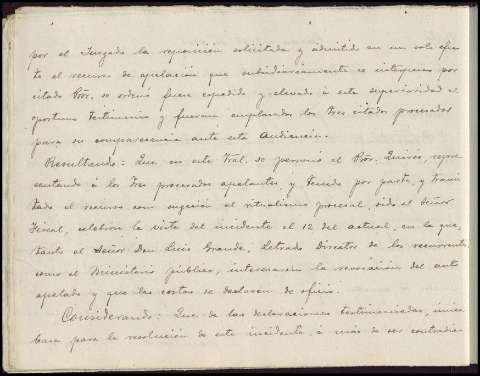 por el Juzgado la reposición solicitada y admitido en un solo efec-
to el recurso de apelación que subsidiariamente se interpuso por
citado Pror. se ordenó fuera expedido y elevado á esta superioridad el
oportuno testimonio y fueran emplazados los tres citados procesados
para su comparecencia ante esta Audiencia.
Resultando: Que en este Tral. se personó el Pror. Quirós, repre-
sentando á los tres procesados apelantes, y tenido por parte, y trami-
tado el recurso con sujeción al ritualismo procesal, oído el Señor
Fiscal, celebrose la vista del incidente el 12 del actual, en la que,
tanto el Señor Don Luis Grande, Letrado Director de los recurrentes
como el Ministerio público, interesaron la revocación del auto
apelado y que las costas se declaren de oficio.
Considerando: Que de las declaraciones testimoniadas, única
base para la resolución de este incidente, á más de ser contradic-